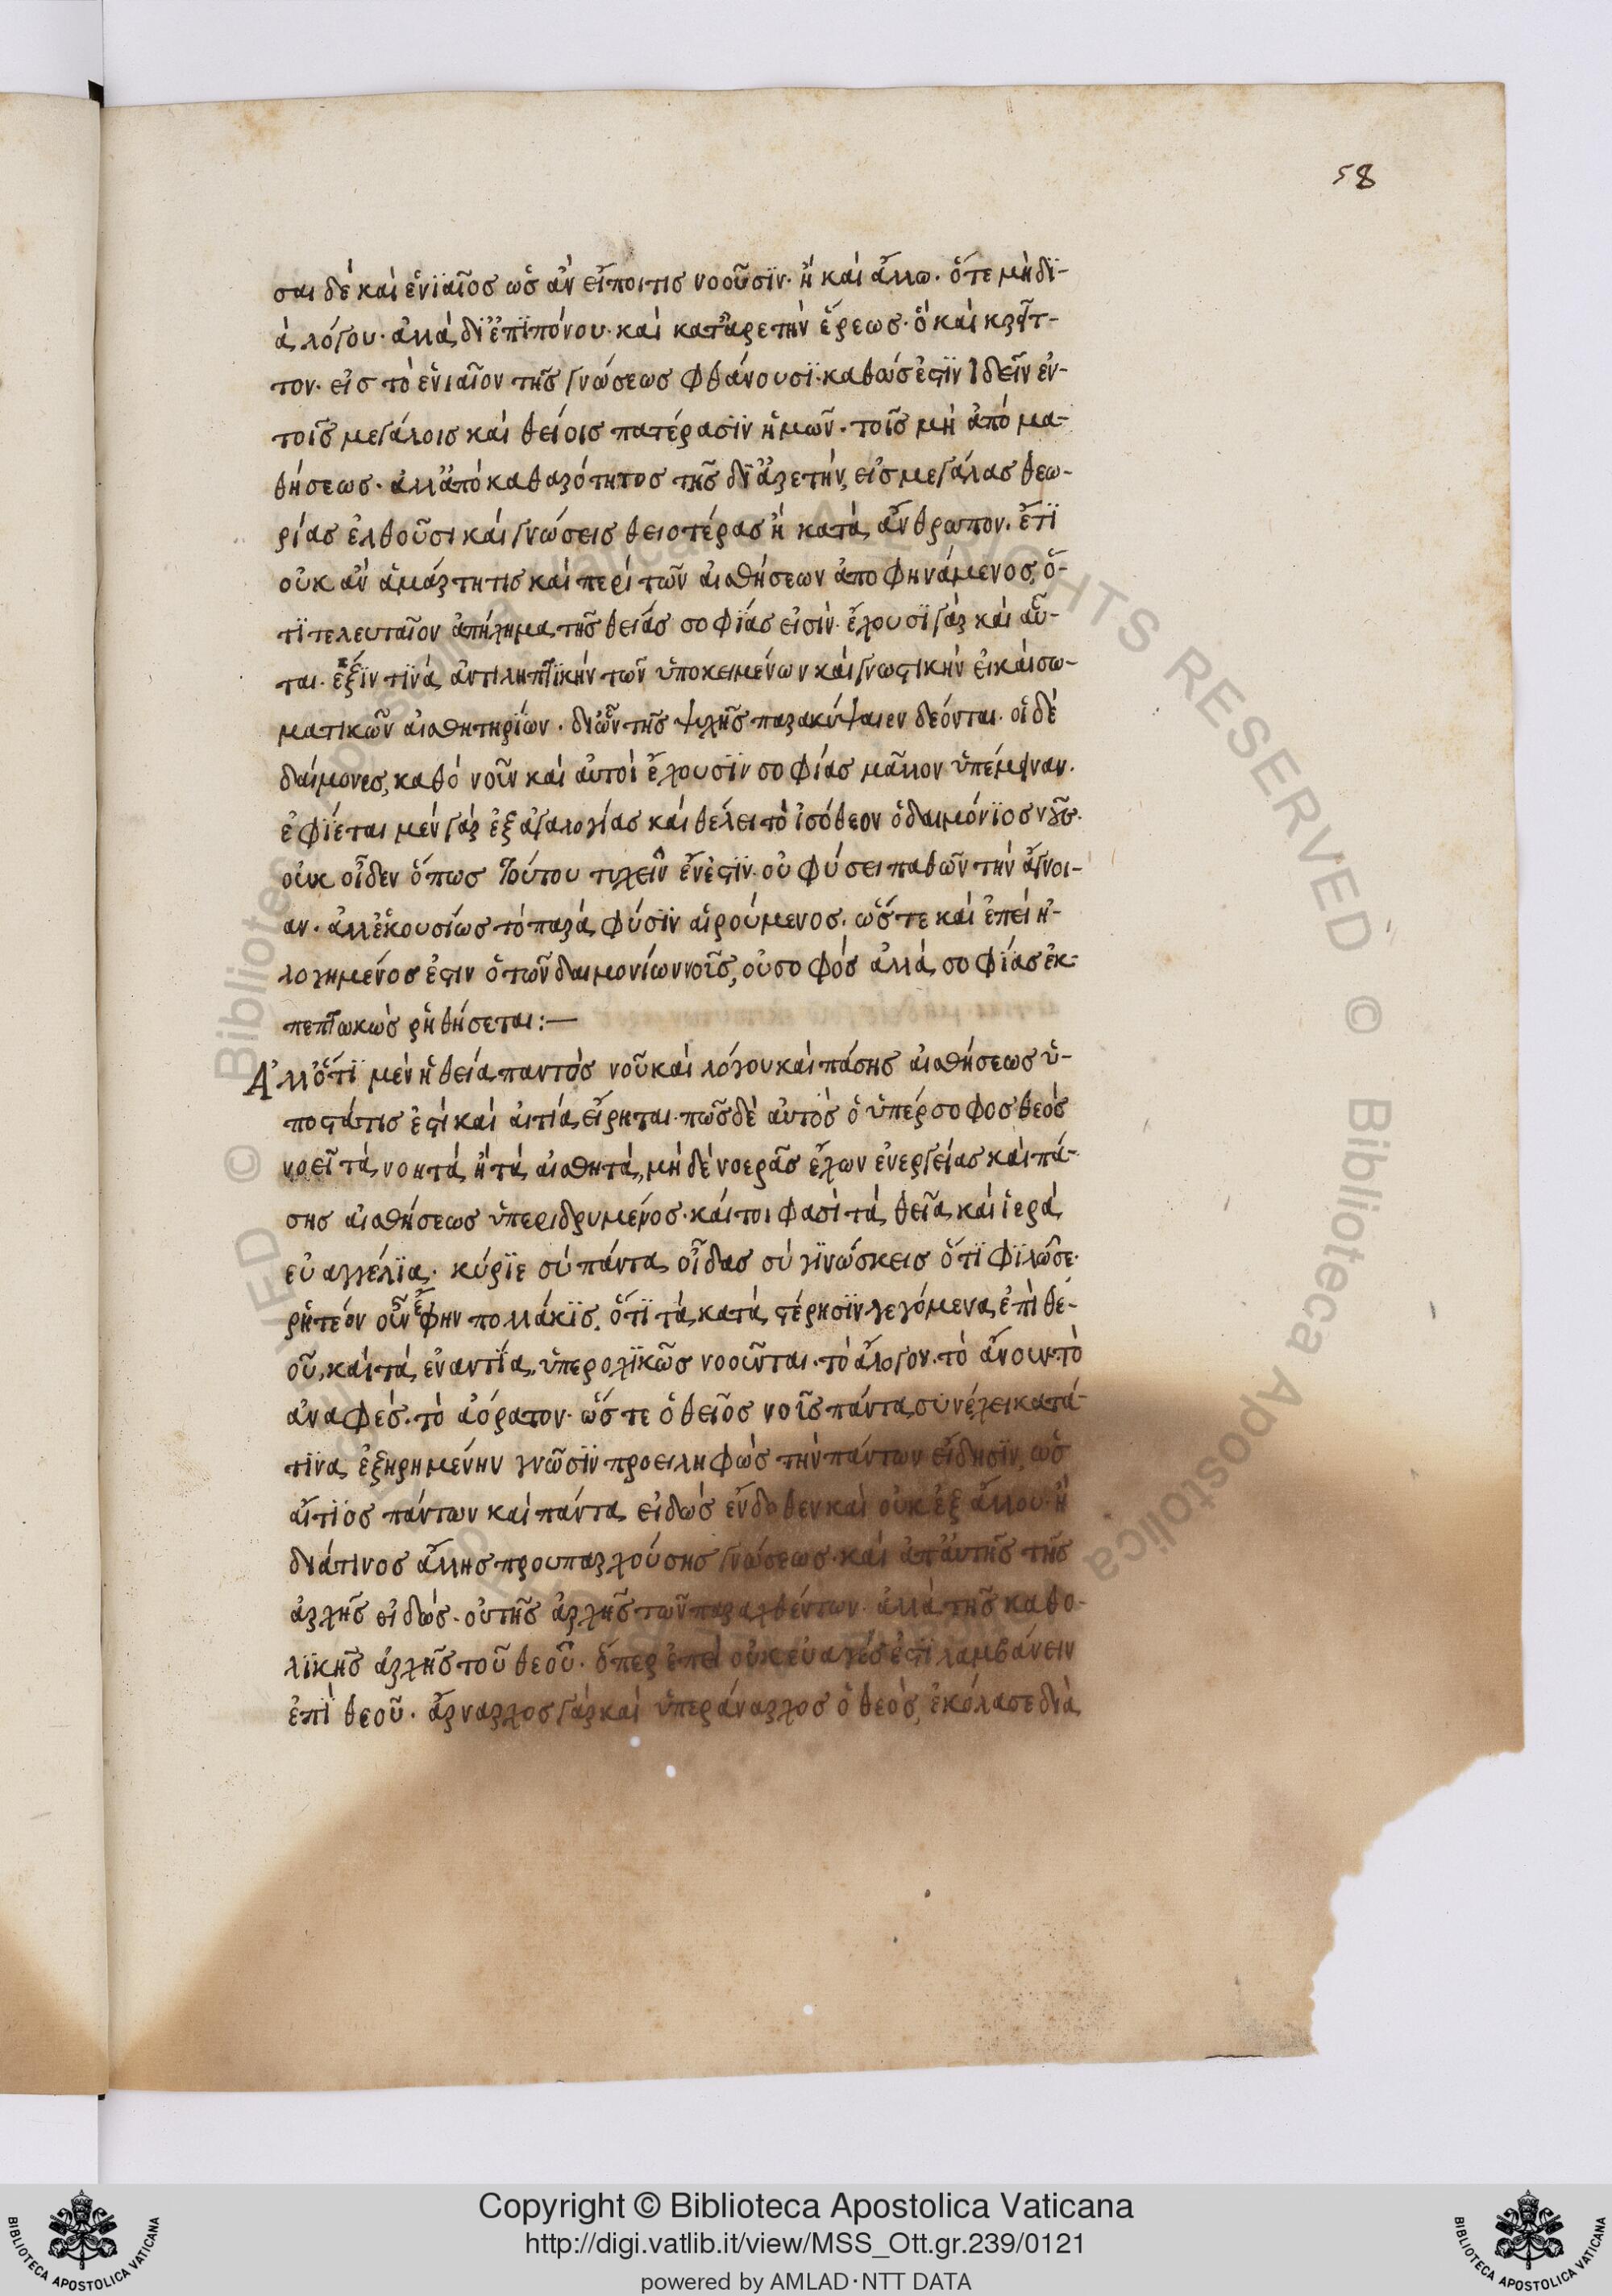 58
σαι δὲ καὶ ἑνϊαῖος ὡς ἂν εἴποι τις νοοῦσϊν· ἢ καὶ ἄλλω. ὅτε μὴ δϊ-
ὰ λόγου· ἀλλὰ δϊ ἐπϊπόνου· καὶ κατ' ἀρετὴν ἕρεως· ὃ καὶ κρεῖτ-
τον· εἰς τὸ ἑνιαῖον τῆς γνώσεως φθάνουσϊ· καθώς ἐστϊν ἰδεῖν ἐν-
τοῖς μεγάλοις καὶ θείοις πατέρασϊν ἡμῶν. τοῖς μὴ ἀπὸ μα-
θήσεως. ἀλλ' ἀπὸ καθαρότητος τῆς δϊ ἀρετὴν, εἰς μεγάλας θεω-
ρίας ἐλθοῦσι καὶ γνώσεις θειοτέρας ἢ κατὰ ἄνθρωπον. ἔτϊ
οὐκ ἂν ἁμάρτῃ τις καὶ περὶ τῶν αἰσθήσεων ἀποφηνάμενος, ὅ-
τϊ τελευταῖον ἀπήχημα τῆς θείας σοφΐας εἰσϊν· ἔχουσϊ γὰρ καὶ αὗ-
ται. ἕξϊν τϊνὰ ἀντιληπτϊκὴν τῶν ὑποκειμένων καὶ γνωστικὴν εἰ καὶ σω-
ματικῶν αἰσθητηρίων. δι' ὧν τῆς ψυχῆς παρακύψαιεν δέονται. οἱ δὲ
δαίμονες, καθὸ νοῦν καὶ αὐτοὶ ἔχουσϊν σοφίας μᾶλλον ὑπέμειναν.
ἐφΐεται μὲν γὰρ ἐξ ἀγαλογίας καὶ θέλει τὸ ἰσόθεον ὁ δαιμόνϊος νοῦς.
οὐκ οἶδεν ὅπως τούτου τυχεῖν ἔνεστϊν· οὐ φύσει παθὼν τὴν ἄγνοι-
αν. ἀλλ' ἑκουσίως τὸ παρὰ φύσϊν αἱρούμενος. ὥστε καὶ ἐπεὶ ἠ-
λογημένος ἐστιν ὁ τῶν δαιμονίων νοῦς, οὐ σοφός ἀλλὰ σοφΐας ἐκ-
πεπτωκὼς ῥηθήσεται:—
Ἀλλ' ὅτϊ μὲν ἡ θεία παντὸς νοῦ καὶ λόγου καὶ πάσης αἰσθήσεως ὑ-
ποστάτις ἐστὶ καὶ αἰτία εἴρηται. πῶς δὲ αὐτὸς ὁ ὑπέρσοφος θεὸς
νοεῖ τὰ νοητὰ ἢ τὰ αἰσθητὰ, μὴ δὲ νοερᾶς ἔχων ἐνεργείας καὶ πά-
σης αἰσθήσεως ὑπεριδρυμένος· καίτοι φασὶ τὰ θεῖα καὶ ἱερὰ
εὐαγγέλϊα· κύρϊε σὺ πάντα οἶδας σὺ γϊνώσκεις ὅτϊ φϊλῶ σε·
ῥητέον οὖν ἔφην πολλάκϊς. ὅτϊ τὰ κατὰ στέρησϊν λεγόμενα ἐπὶ θε-
οῦ, καὶ τὰ ἐναντία, ὑπεροχϊκῶς νοοῦνται. τὸ ἄλογον. τὸ ἄνουν. τὸ
ἀναφές. τὸ ἀόρατον· ὥστε ὁ θεῖος νοῦς πάντα συνέχει κατά-
τϊνα ἐξῃρημένην γνῶσϊν προειληφὼς τὴν πάντων εἴδησϊν, ὡς
αἴτϊος πάντων καὶ πάντα εἰδὼς ἔνδοθεν καὶ οὐκ ἐξ ἄλλου· ἢ
διά τινος ἄλλης προυπαρχούσης γνώσεως· καὶ ἀπ' αὐτῆς τῆς
ἀρχῆς εἰδώς. οὐ τῆς ἀρχῆς τῶν παραχθέντων· ἀλλὰ τῆς καθο-
λϊκῆς ἀρχῆς τοῦ θεοῦ· ὅπερ ἐπεὶ οὐκ εὐαγές ἐστϊ λαμβάνειν
ἐπὶ θεοῦ. ἄρναρχος γὰρ καὶ ὑπεράναρχος ὁ θεὸς, ἐκόλασε διὰ
Copyright © Biblioteca Apostolica Vaticana
http://digi.vatlib.it/view/MSS_Ott.gr.239/0121
powered by AMLAD·NTT DATA